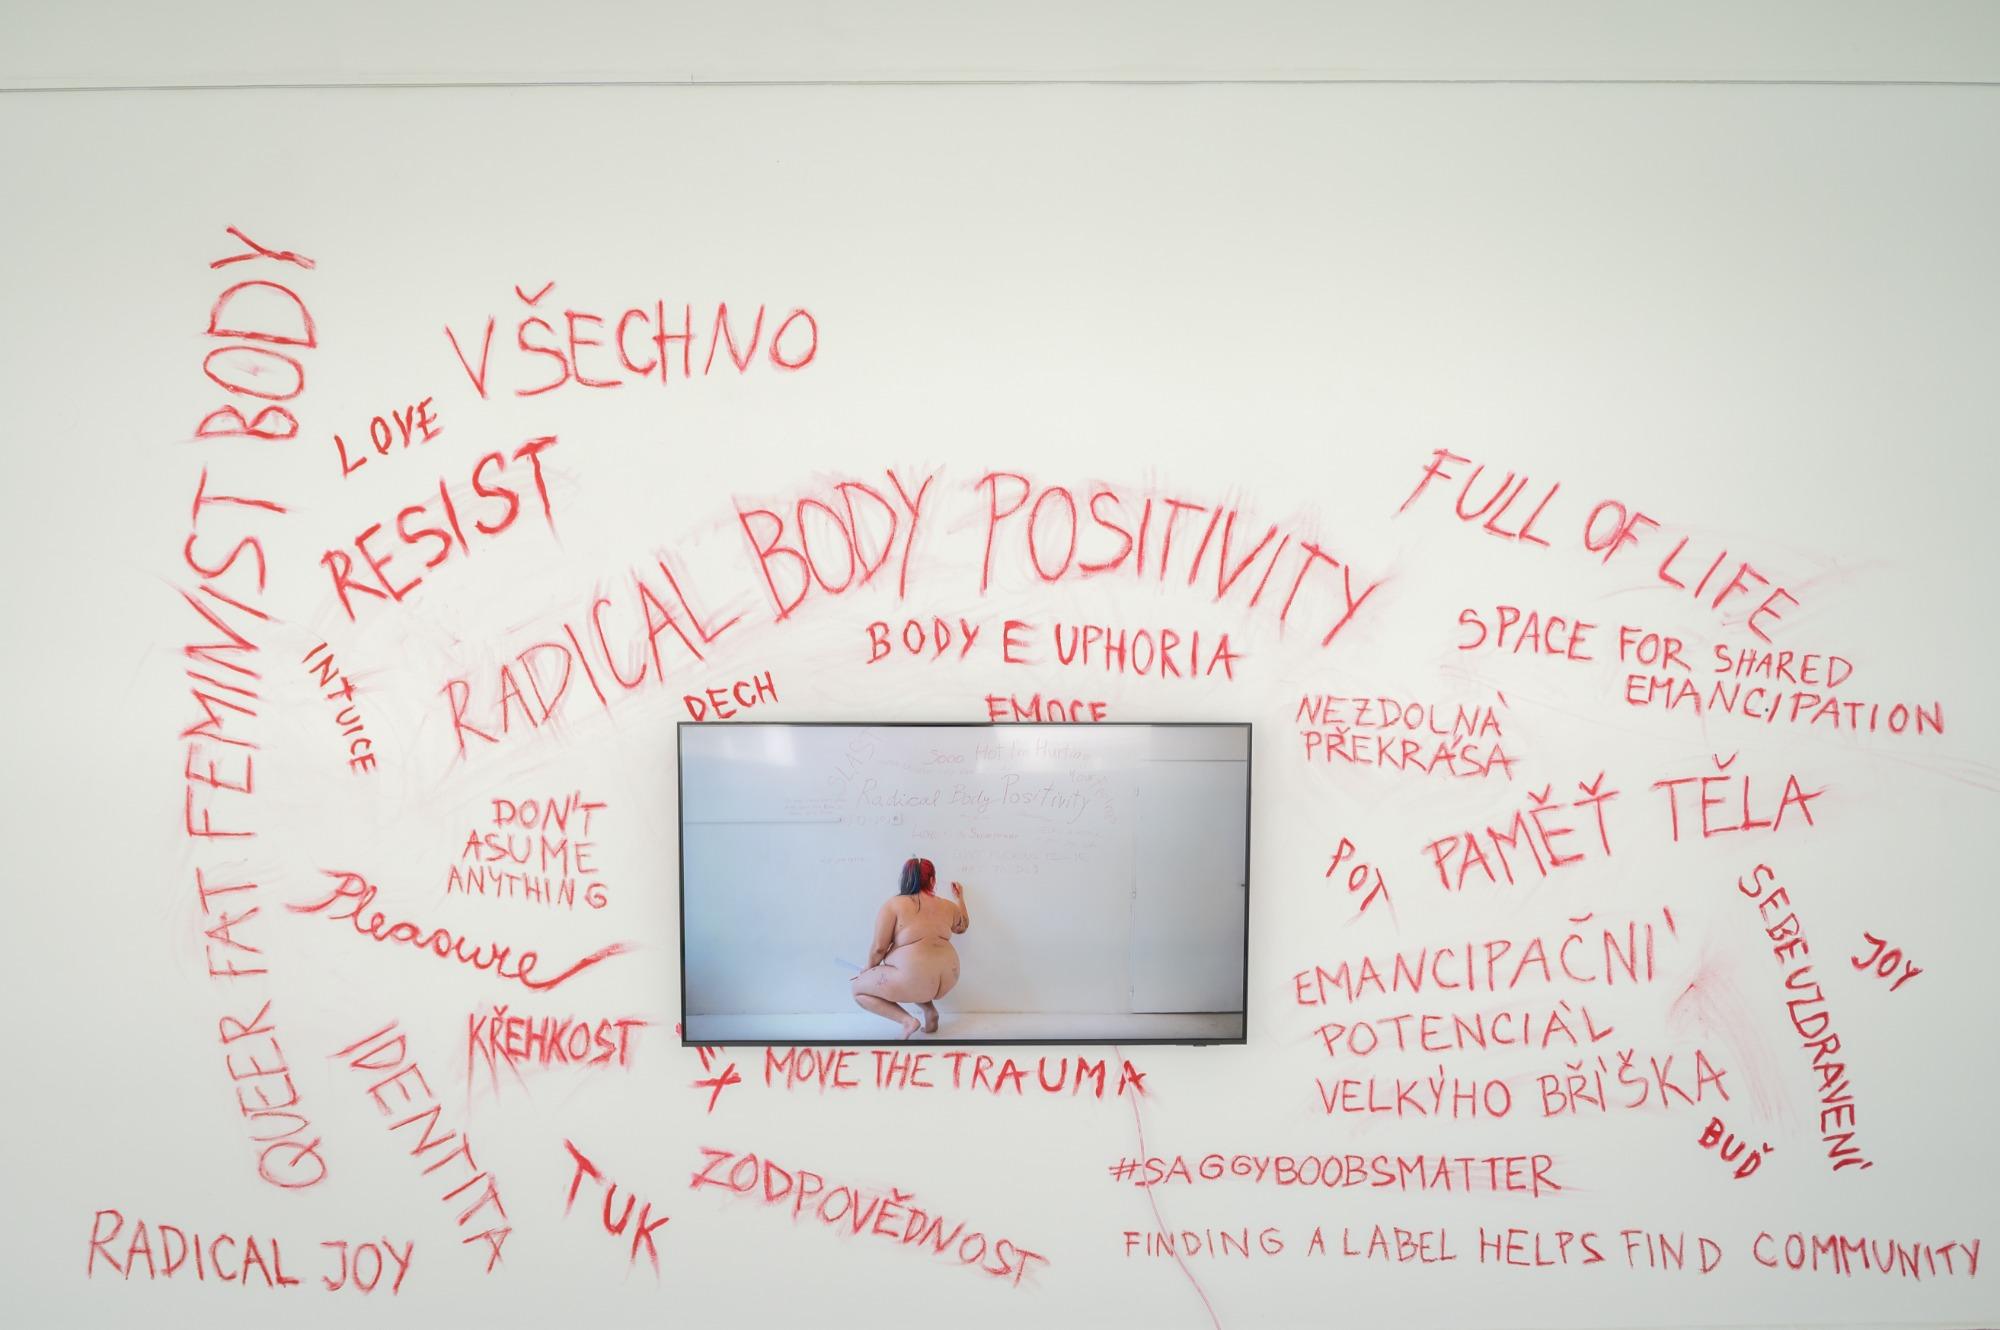 QUEER FAT FEMINIST BODY
VŠECHNO
LOVE
RESIST
RADICAL BODY POSITIVITY
FULL OF LIFE
BODY EUPHORIA
SPACE FOR SHARED
EMANCIPATION
INTUICE
DECH
EMOCE
NEZDOLNÁ
PŘEKRÁSA
Sooo Hot I'm Hurting
Radical Body Positivity
DON'T
ASUME
ANYTHING
PAMĚŤ TĚLA
POT
Pleasure
SEBEUZDRAVENÍ
JOY
EMANCIPAČNÍ
POTENCIÁL
VELKÝHO BŘÍŠKA
KŘEHKOST
IDENTITA
MOVE THE TRAUMA
BUĎ
TUK
ZODPOVĚDNOST
#SAGGYBOOBSMATTER
RADICAL JOY
FINDING A LABEL HELPS FIND COMMUNITY